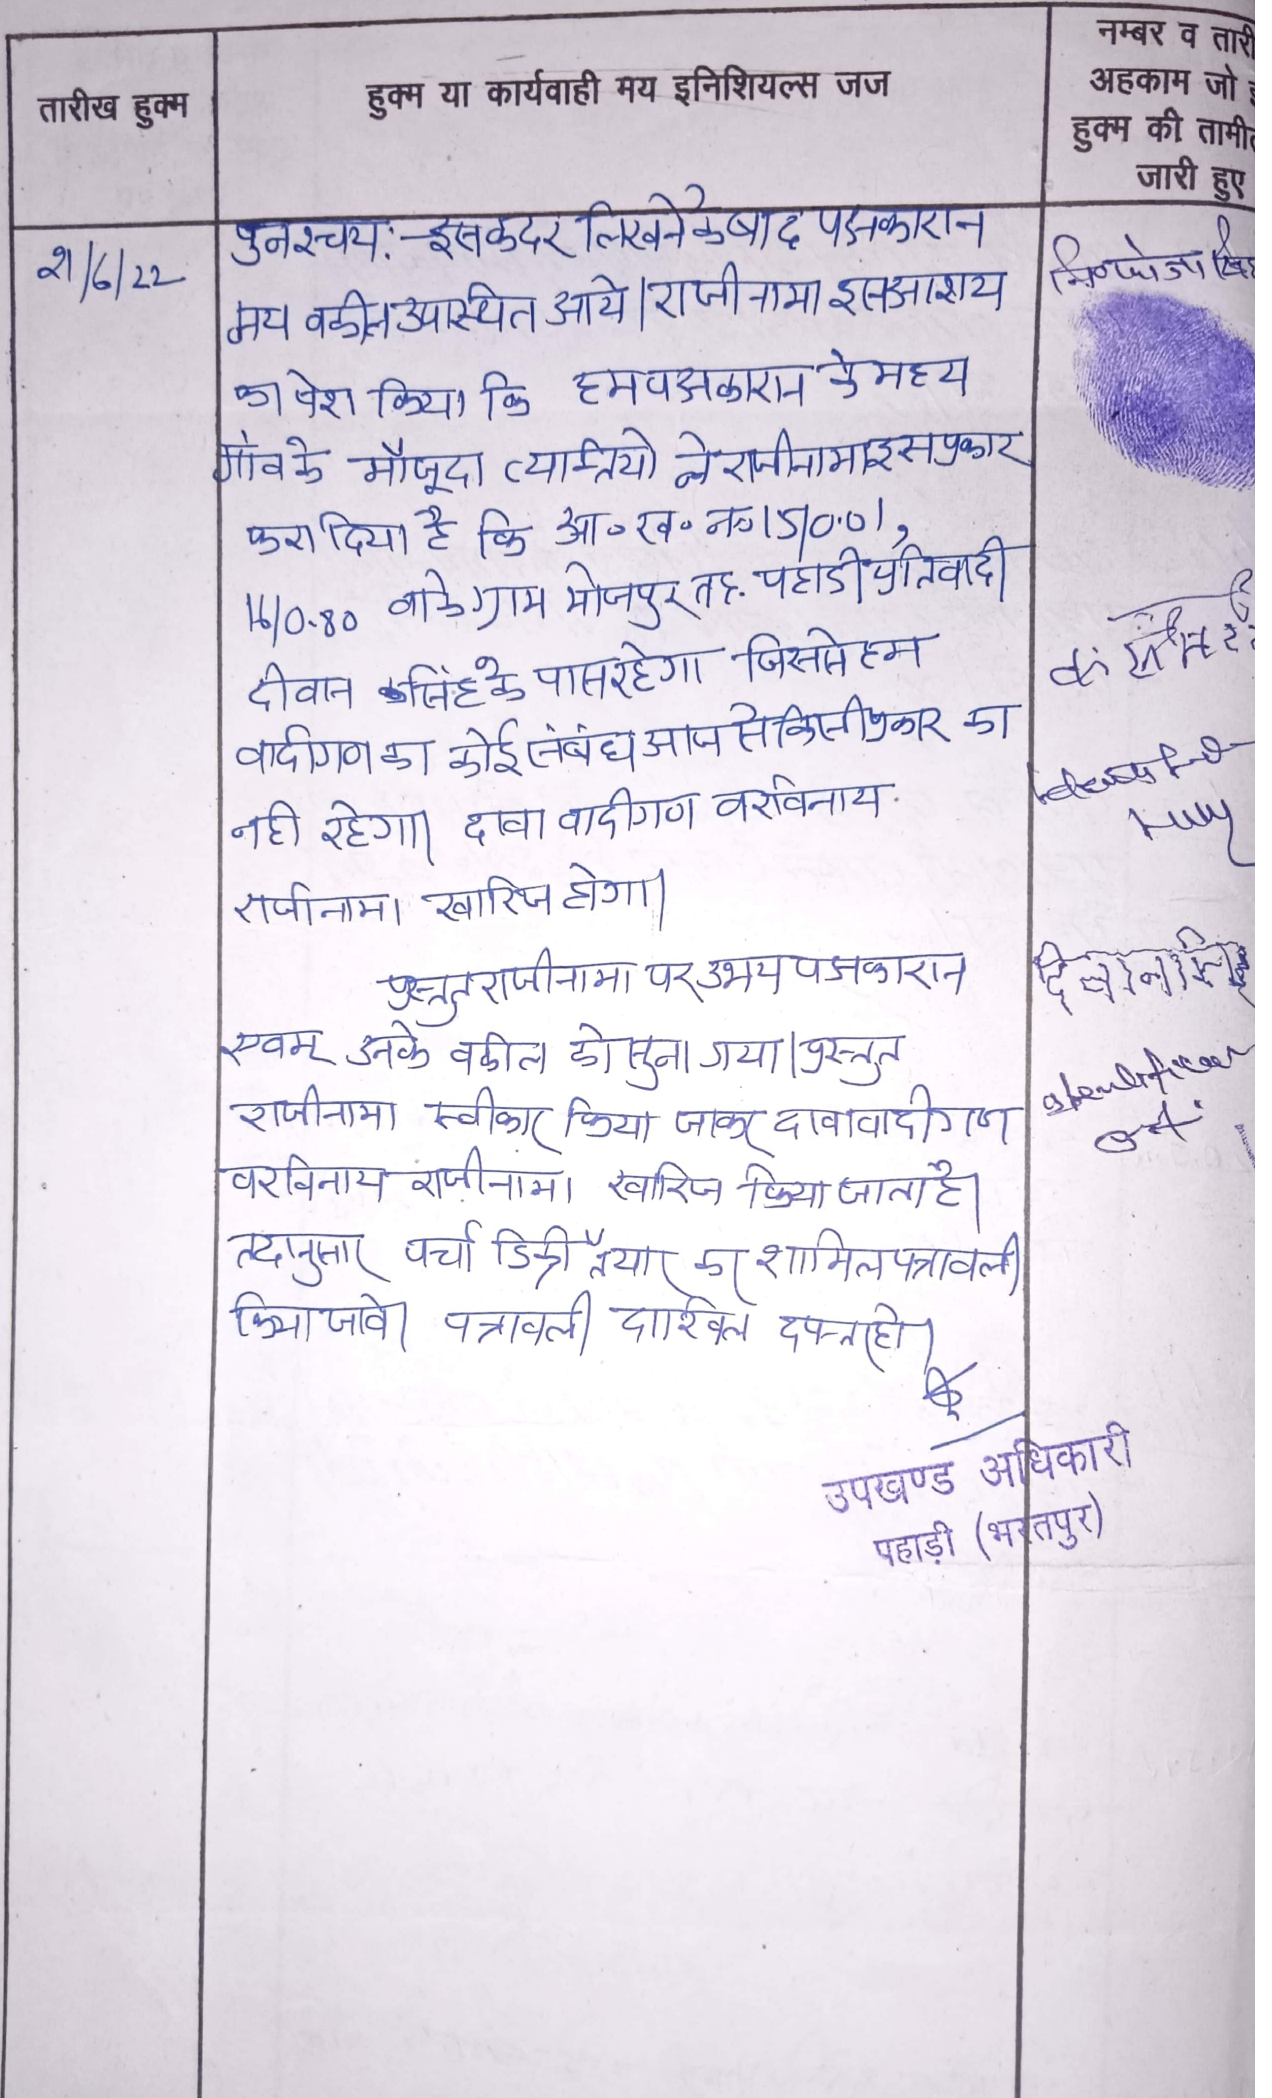 तारीख हुक्म
हुक्म या कार्यवाही मय इनिशियल्स जज
नम्बर व तारी
अहकाम जो
हुक्म की तामील
जारी हुए
21/6/22
पुनश्चय:- इस कदर लिखने के बाद पक्षकारान
मय वकील उपस्थित आये। राजीनामा इस आशय
का पेश किया कि हम पक्षकारान के मध्य
गांव के मौजूदा व्यक्तियो ने राजीनामा इस प्रकार
करा दिया है कि आ॰ ख॰ न॰ 15/0.01,
16/0.80 वाके ग्राम भोजपुर तह. पहाडी प्रतिवादी
दीवान सिंह के पास रहेगा जिससे हम
वादीगण का कोई संबंध आज से किसी प्रकार का
नही रहेगा। दावा वादीगण वरविनाय
राजीनामा खारिज होगा।
प्रस्तुत राजीनामा पर उभय पक्षकारान
एवम् उनके वकील को सुना गया। प्रस्तुत
राजीनामा स्वीकार किया जाकर दावा वादीगण
वरविनाय राजीनामा खारिज किया जाता है।
तदानुसार पर्चा डिक्री तैयार कर शामिल पत्रावली
किया जावे। पत्रावली दाखिल दफ्तर हो।
उपखण्ड अधिकारी
पहाड़ी (भरतपुर)